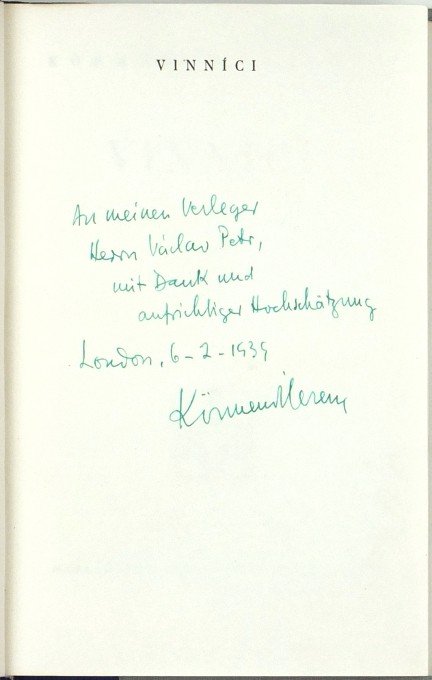 VINNÍCI
An meinen Verleger
Herrn Václav Petr,
mit Dank und
aufrichtiger Hochschätzung
London, 6-2-1939
Körmendi Ferenc